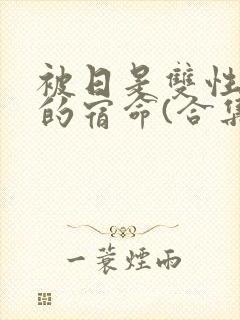 被日是雙性
的宿命(合集
一蓑煙雨